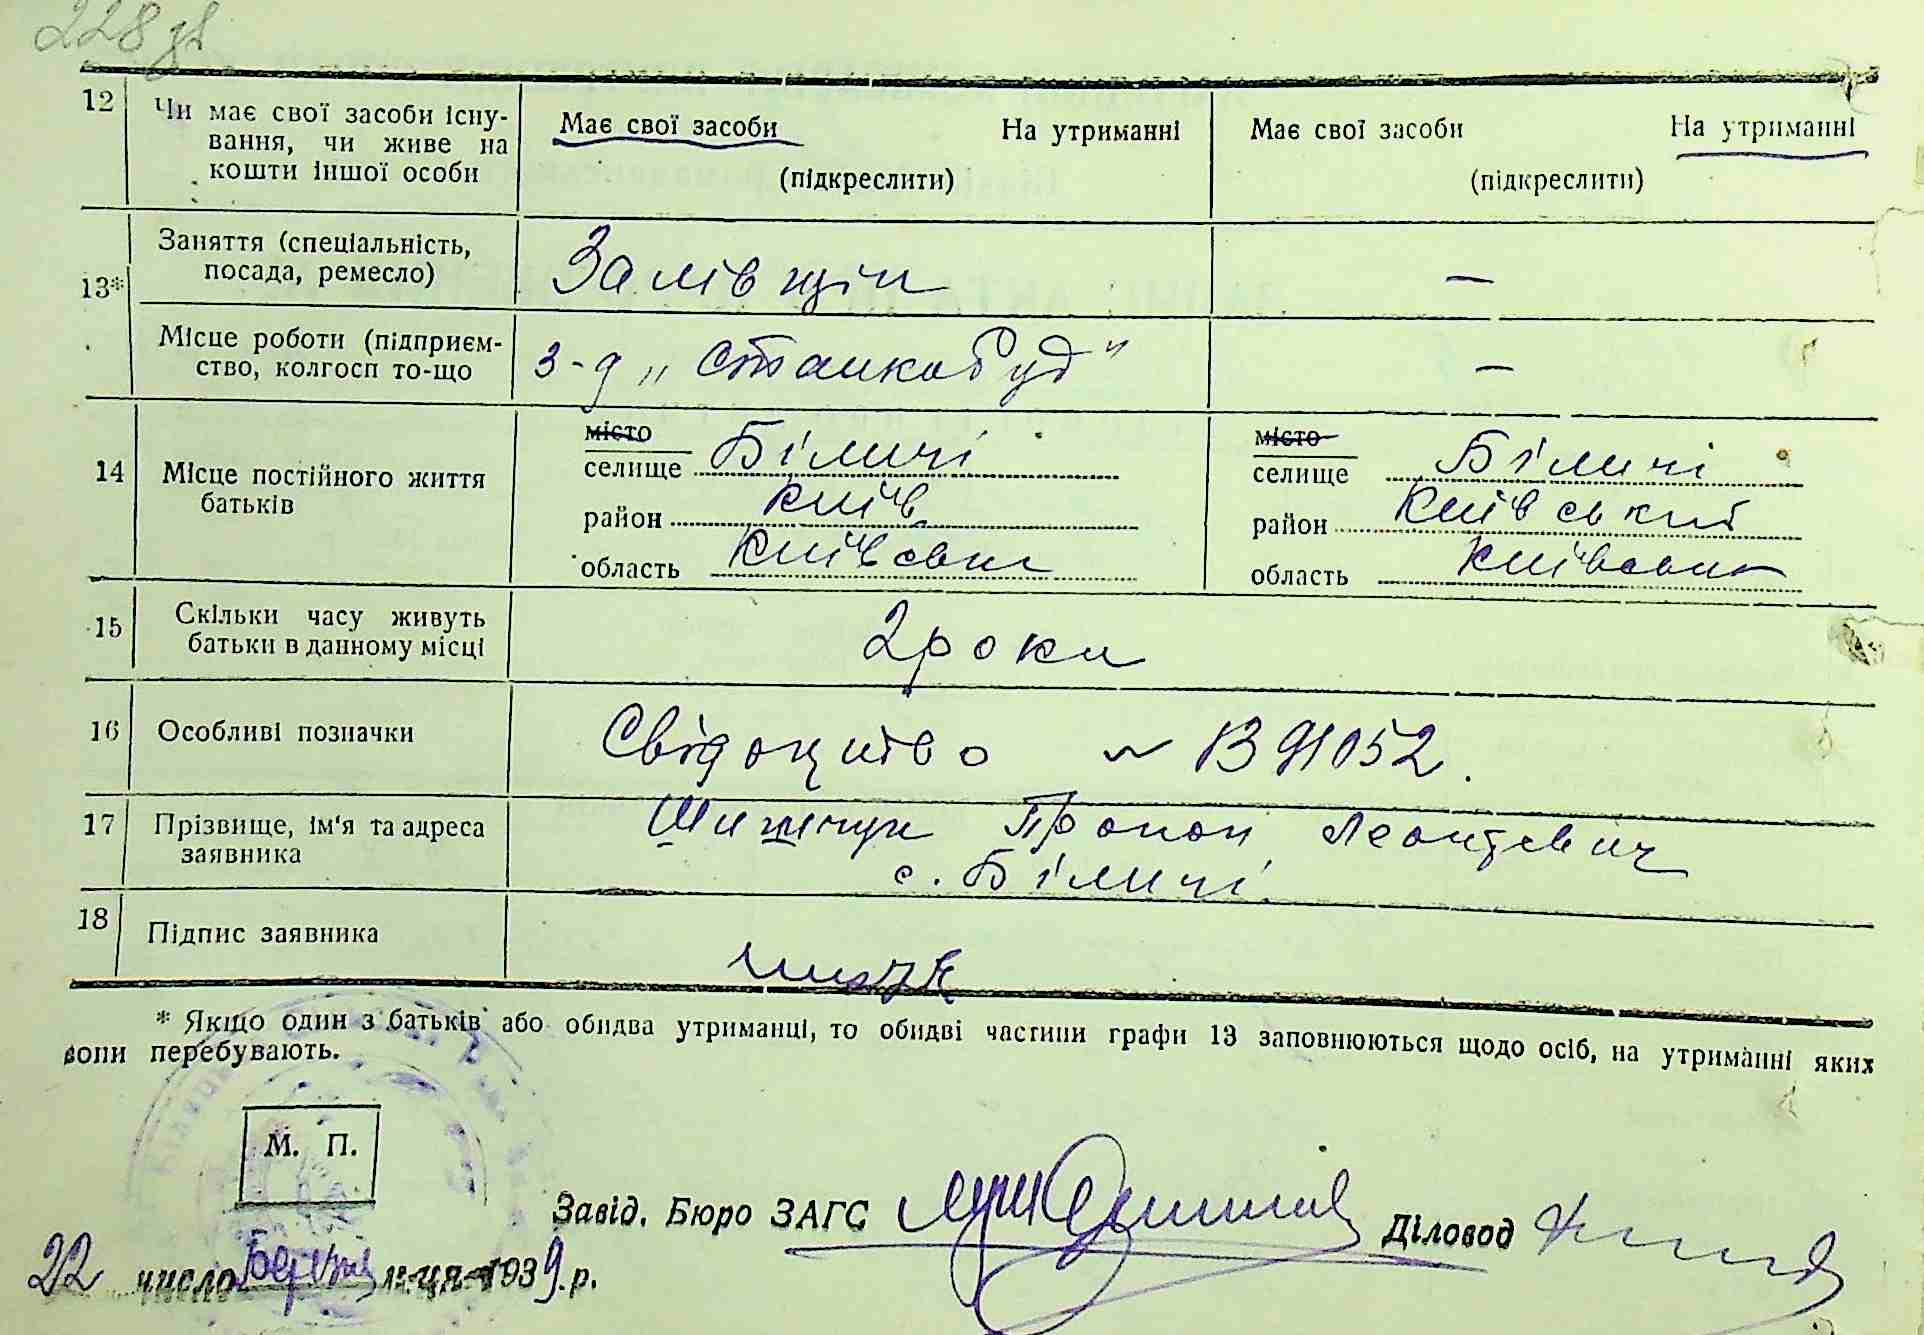 228 зв
12 Чи має свої засоби існу- Має свої засоби На утриманні Має свої засоби На утриманні
вання, чи живе на
кошти іншої особи (підкреслити) (підкреслити)
Заняття (спеціальність, Залівщик —
посада, ремесло)
13*
Місце роботи (підприєм- з-д „Станкобуд" —
ство, колгосп то-що
місто місто
14 Місце постійного життя селище Біличі селище Біличі
батьків район Київ район Київський
область Київська область Київська
15 Скільки часу живуть 2 роки
батьки в данному місці
16 Особливі позначки Свідоцтво № 1391052.
17 Прізвище, ім'я та адреса Прокоп Леонтєвич
заявника с. Біличі
18 Підпис заявника
* Якщо один з батьків або обидва утриманці, то обидві частини графи 13 заповнюються щодо осіб, на утриманні яких
вони перебувають.
М. П.
Завід. Бюро ЗАГС Діловод
22 число Березня м-ця 1939 р.